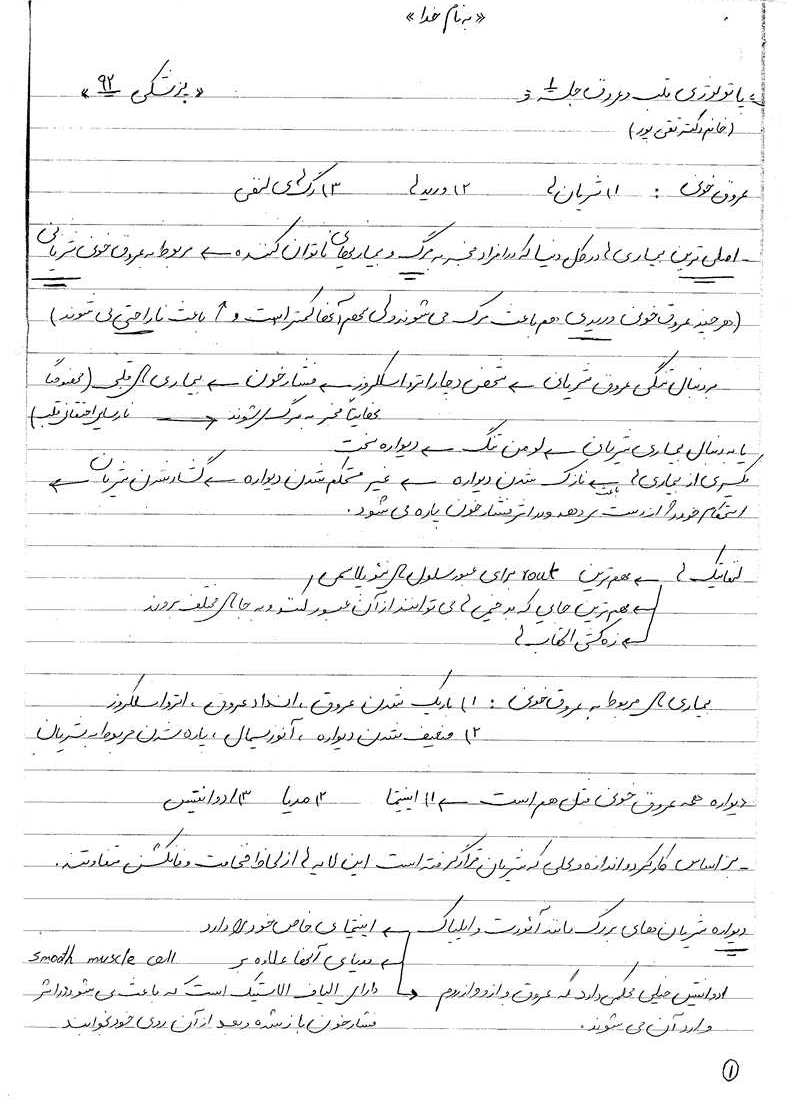 «به نام خدا»
پاتولوژی قلب و عروق جلسه ۱ «پزشکی ۹۲»
(خانم دکتر تقی پور)
عروق خونی : ۱) شریان ها ۲) ورید ها ۳) رگ های لنفی
ـ اصلی ترین بیماری ها در کل دنیا که در افراد منجر به مرگ و بیماریهای ناتوان کننده ← مربوط به عروق خونی شریانی
(هر چند عروق خونی وریدی هم باعث مرگ می شوند ولی سهم آنها کمتر است و ↑ باعث ناراحتی می شوند)
به دنبال تنگی عروق شریانی ← شخص دچار اترواسکلروز ← فشار خون ← بیماری های قلبی (عمدتاً
نهایتاً منجر به مرگ می شوند ← نارسایی احتقانی قلب)
یا به دنبال بیماری شریان ← لومن تنگ ← دیواره سخت
یکسری از بیماری ها باعث ← نازک شدن دیواره ← غیر محکم شدن دیواره ← گشاد شدن شریان ←
استحکام خود را از دست می دهد و در اثر فشار خون پاره می شود.
لنفاتیک ها ← مهم ترین rout برای عبور سلول های نئوپلاسمی
← مهم ترین جایی که بدخیمی ها می توانند از آن عبور کنند و به جا های مختلف بروند
← زه کشی التهاب ها
بیماری های مربوط به عروق خونی : ۱) باریک شدن عروق ، انسداد عروق ، اترواسکلروز
۲) ضعیف شدن دیواره ، آنوریسمال ، پاره شدن مربوط به شریان
دیواره همه عروق خونی مثل هم است ← ۱) اینتیما ۲) مدیا ۳) ادوانتیس
ـ بر اساس کارکرد و اندازه و محلی که شریان قرار گرفته است این لایه ها از لحاظ ضخامت و فانکشن متفاوتند.
دیواره شریان های بزرگ مانند آئورت و ایلیاک ← اینتیمای خاص خود را دارد
← مدیای آنها علاوه بر smooth muscle cell
دارای الیاف الاستیک است که باعث می شود در اثر
فشار خون باز شده و بعد از آن روی خود بخوابند
← ادوانتیس خیلی محکمی دارد که عروق وازو وازروم
وارد آن می شوند.
۱